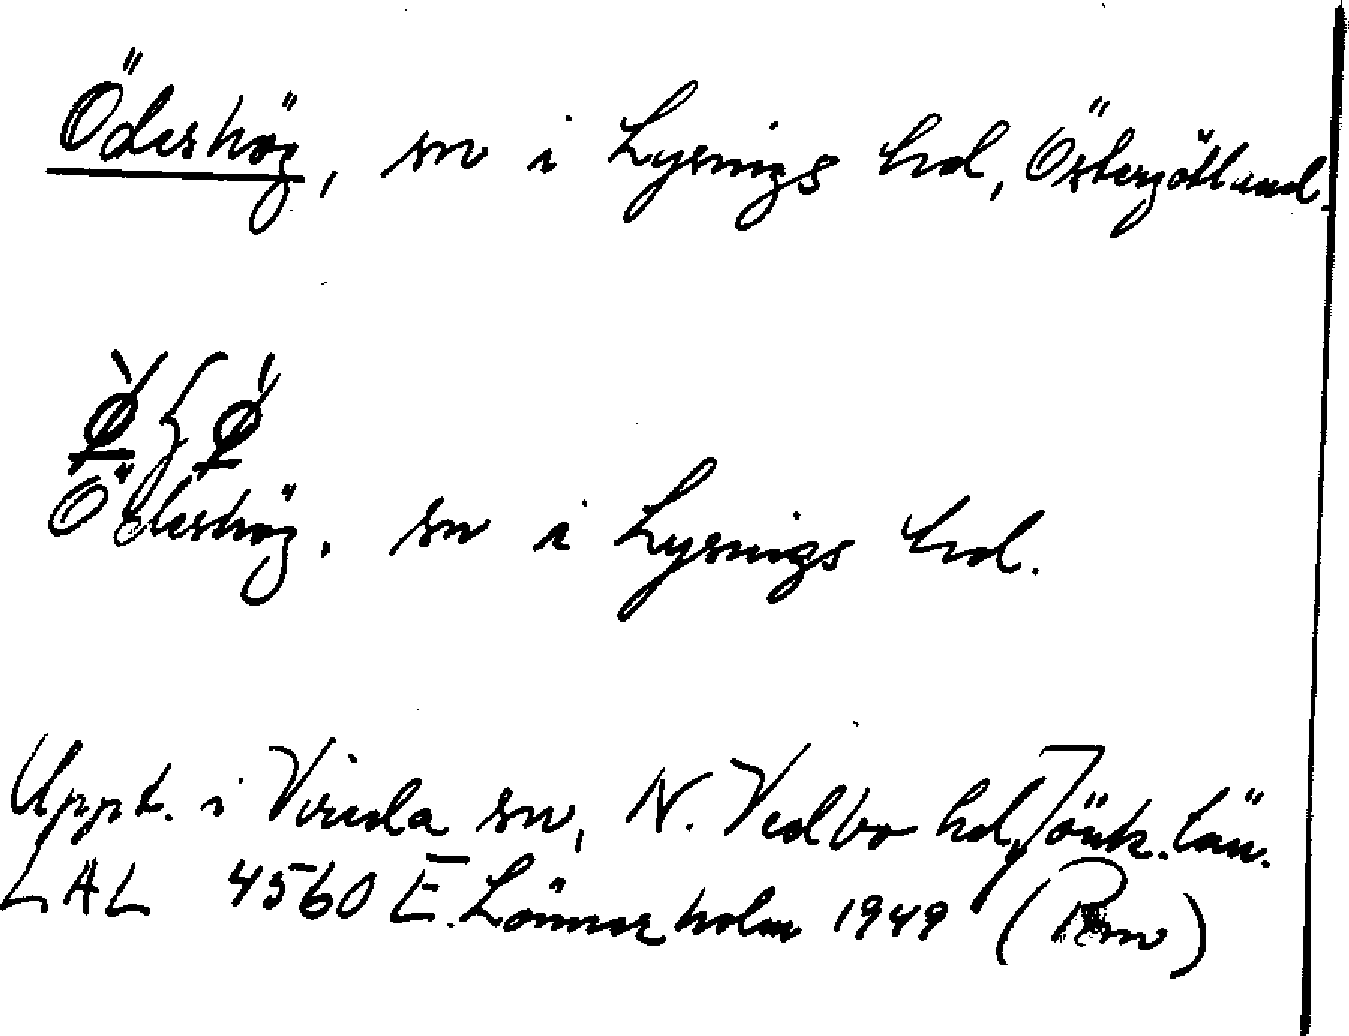 Ödeshög, sn i Lysings hd, Östergötland.
Ödeshög, sn i Lysings hd.
Uppt. i Vireda sn, N. Vedbo hd, Jönk. län.
LAL 4560 E. Lönnerholm 1949